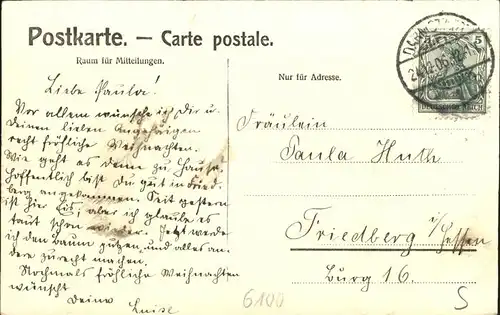 Postkarte. — Carte postale.
Raum für Mitteilungen.
Nur für Adresse.
5
DEUTSCHES REICH
24.12.06.
Liebe Paula!
Vor allem wünsche ich dir u
deinen lieben Angehörigen
recht fröhliche Weihnachten.
Wie geht es denn zu Hause,
hoffentlich bist Du gut in Fried-
berg angekommen. Seit gestern
ist hier Eis, aber ich glaube es
taut schon wieder. Jetzt werde
ich den Baum putzen, und alles an-
dere zurecht machen.
Nochmals fröhliche Weihnachten
wünscht
Deine Luise
Fräulein
Paula Huth
Friedberg i/Hessen
Burg 16.
6100
S